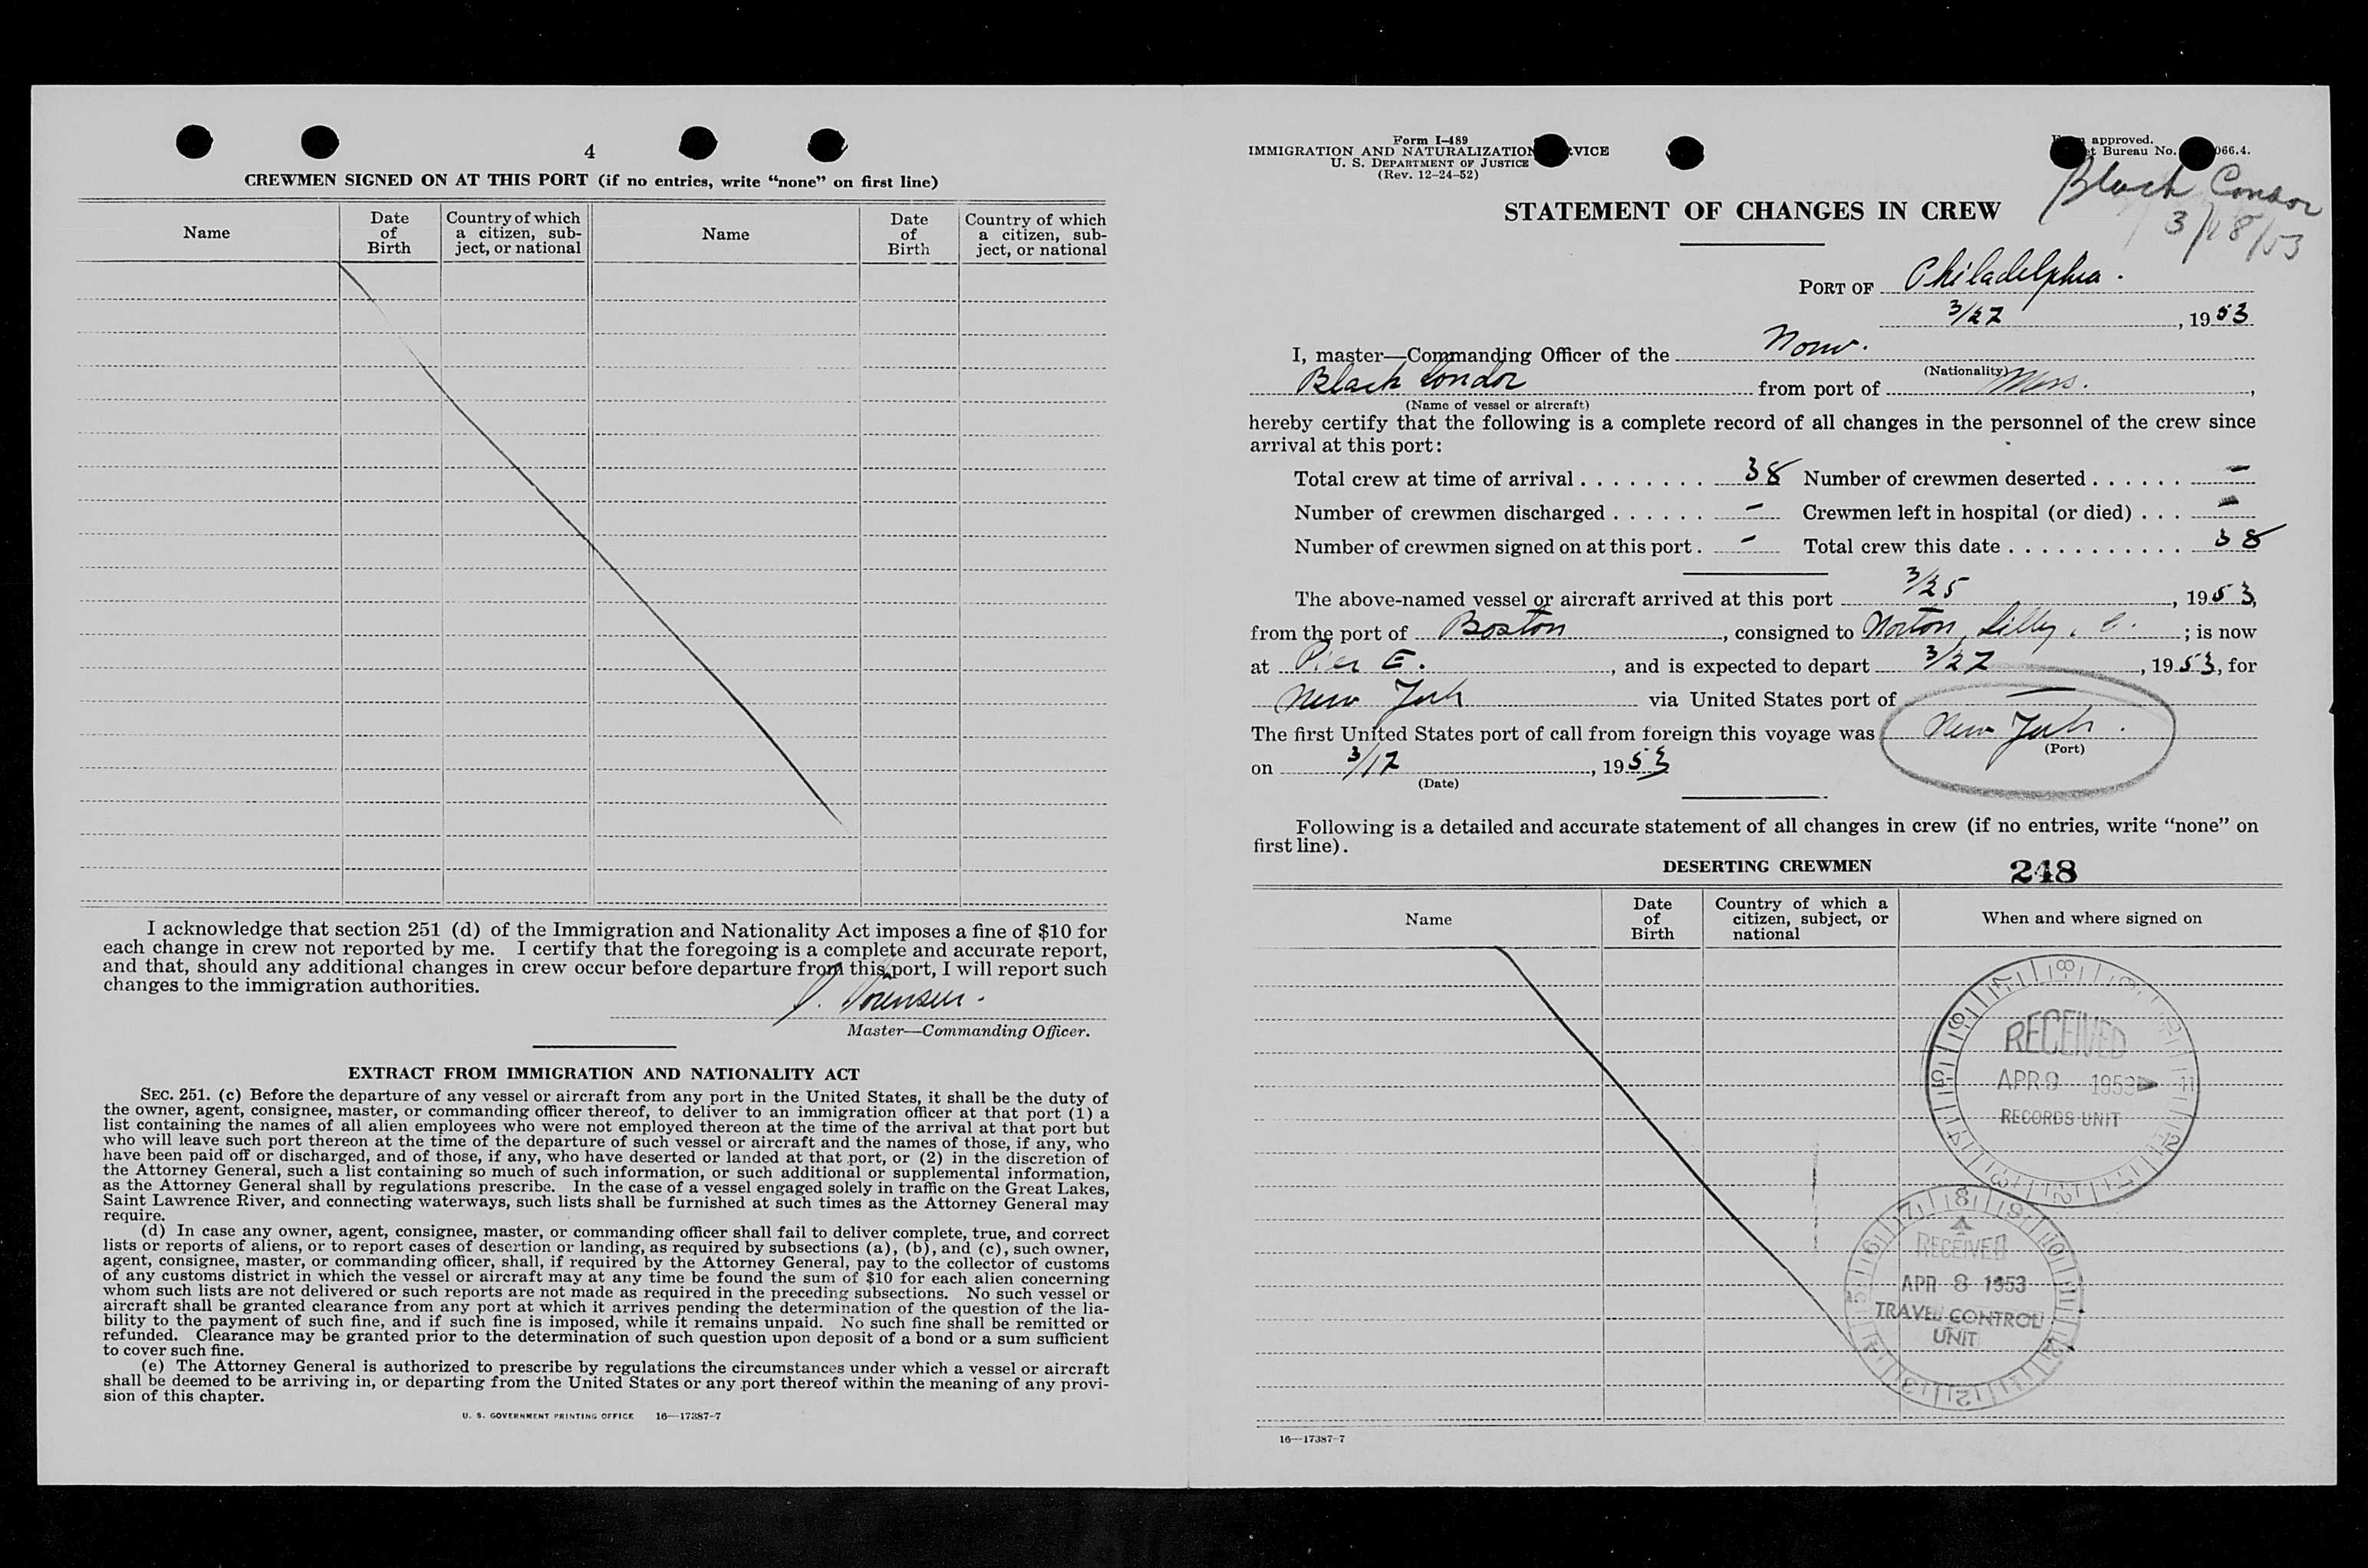 4
CREWMEN SIGNED ON AT THIS PORT (if no entries, write “none” on first line)
Name
Date of Birth
Country of which a citizen, sub-ject, or national
Name
Date of Birth
Country of which a citizen, sub-ject, or national
I acknowledge that section 251 (d) of the Immigration and Nationality Act imposes a fine of $10 for
each change in crew not reported by me. I certify that the foregoing is a complete and accurate report,
and that, should any additional changes in crew occur before departure from this port, I will report such
changes to the immigration authorities.
Master—Commanding Officer.
EXTRACT FROM IMMIGRATION AND NATIONALITY ACT
SEC. 251. (c) Before the departure of any vessel or aircraft from any port in the United States, it shall be the duty of
the owner, agent, consignee, master, or commanding officer thereof, to deliver to an immigration officer at that port (1) a
list containing the names of all alien employees who were not employed thereon at the time of the arrival at that port but
who will leave such port thereon at the time of the departure of such vessel or aircraft and the names of those, if any, who
have been paid off or discharged, and of those, if any, who have deserted or landed at that port, or (2) in the discretion of
the Attorney General, such a list containing so much of such information, or such additional or supplemental information,
as the Attorney General shall by regulations prescribe. In the case of a vessel engaged solely in traffic on the Great Lakes,
Saint Lawrence River, and connecting waterways, such lists shall be furnished at such times as the Attorney General may
require.
(d) In case any owner, agent, consignee, master, or commanding officer shall fail to deliver complete, true, and correct
lists or reports of aliens, or to report cases of desertion or landing, as required by subsections (a), (b), and (c), such owner,
agent, consignee, master, or commanding officer, shall, if required by the Attorney General, pay to the collector of customs
of any customs district in which the vessel or aircraft may at any time be found the sum of $10 for each alien concerning
whom such lists are not delivered or such reports are not made as required in the preceding subsections. No such vessel or
aircraft shall be granted clearance from any port at which it arrives pending the determination of the question of the lia-
bility to the payment of such fine, and if such fine is imposed, while it remains unpaid. No such fine shall be remitted or
refunded. Clearance may be granted prior to the determination of such question upon deposit of a bond or a sum sufficient
to cover such fine.
(e) The Attorney General is authorized to prescribe by regulations the circumstances under which a vessel or aircraft
shall be deemed to be arriving in, or departing from the United States or any port thereof within the meaning of any provi-
sion of this chapter.
U. S. GOVERNMENT PRINTING OFFICE 16—17387-7
Form I-489
IMMIGRATION AND NATURALIZATION VICE
U. S. DEPARTMENT OF JUSTICE
(Rev. 12-24-52)
approved.
t Bureau No. 066.4.
Black Condor
3/18/53
STATEMENT OF CHANGES IN CREW
PORT OF Philadelphia.
3/27, 1953
I, master—Commanding Officer of the Norw.
(Nationality)
Black Condor from port of
(Name of vessel or aircraft)
hereby certify that the following is a complete record of all changes in the personnel of the crew since
arrival at this port:
Total crew at time of arrival 38 Number of crewmen deserted –
Number of crewmen discharged – Crewmen left in hospital (or died) –
Number of crewmen signed on at this port – Total crew this date 38
The above-named vessel or aircraft arrived at this port 3/25, 1953,
from the port of Boston, consigned to Norton, Lilly ; is now
at Pier E., and is expected to depart 3/27, 1953, for
New York via United States port of —
The first United States port of call from foreign this voyage was New York.
(Port)
on 3/17, 1953
(Date)
Following is a detailed and accurate statement of all changes in crew (if no entries, write “none” on
first line).
DESERTING CREWMEN 248
Name
Date of Birth
Country of which a citizen, subject, or national
When and where signed on
RECEIVED
APR 9 1953
RECORDS UNIT
RECEIVED
APR 8 1953
TRAVEL CONTROL
UNIT
16—17387-7